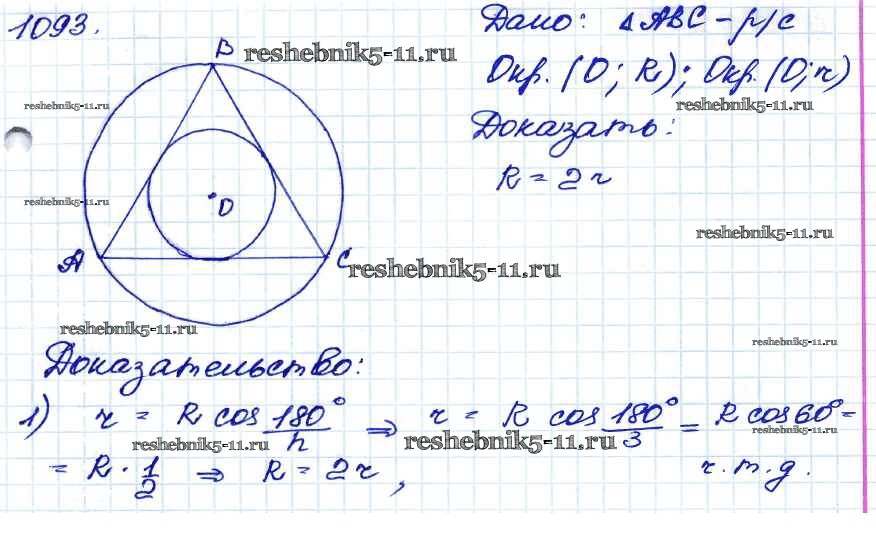 1093.
Дано: △ABC - р/с
Окр. (O; R); Окр. (O; r)
Доказать:
R = 2r
B
O
A
C
Доказательство:
1) r = R cos 180°/n ⇒ r = R cos 180°/3 = R cos 60° =
= R · 1/2 ⇒ R = 2r, ч.т.д.
reshebnik5-11.ru
reshebnik5-11.ru
reshebnik5-11.ru
reshebnik5-11.ru
reshebnik5-11.ru
reshebnik5-11.ru
reshebnik5-11.ru
reshebnik5-11.ru
reshebnik5-11.ru
reshebnik5-11.ru
reshebnik5-11.ru